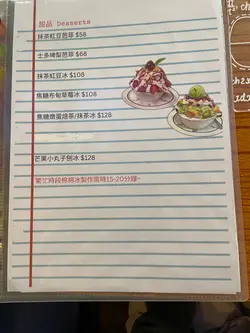 甜品 Desserts
抹茶紅豆芭菲 $58
士多啤梨芭菲 $68
抹茶紅豆冰 $108
焦糖布甸草莓冰 $108
焦糖燉蛋焙茶/抹茶冰 $128
芒果小丸子刨冰 $128
繁忙時段棉棉冰製作需時15-20分鐘~